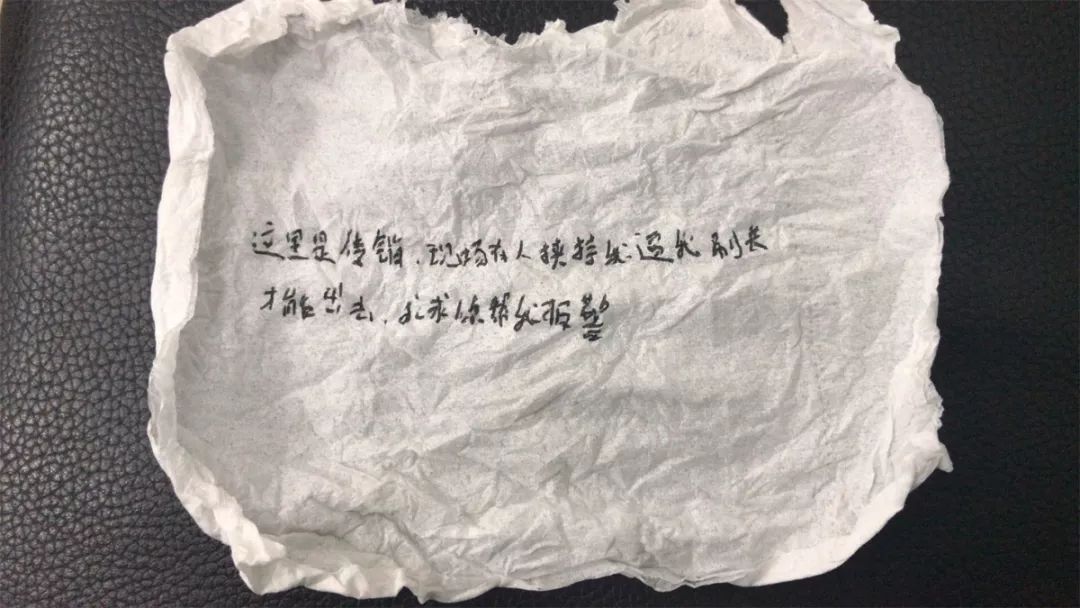 这里是传销，现场有人挟持我逼我刷卡
才能出去，求求你帮我报警